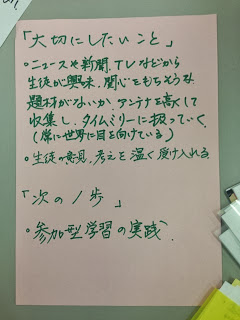 「大切にしたいこと」
○ニュースや新聞、TVなどから
生徒が興味、関心をもちそうな
題材がないか、アンテナを高くして
収集し、タイムリーに扱っていく
(常に世界に目を向けている)
○生徒の意見、考えを温く受け入れる
「次の1歩」
○参加型学習の実践